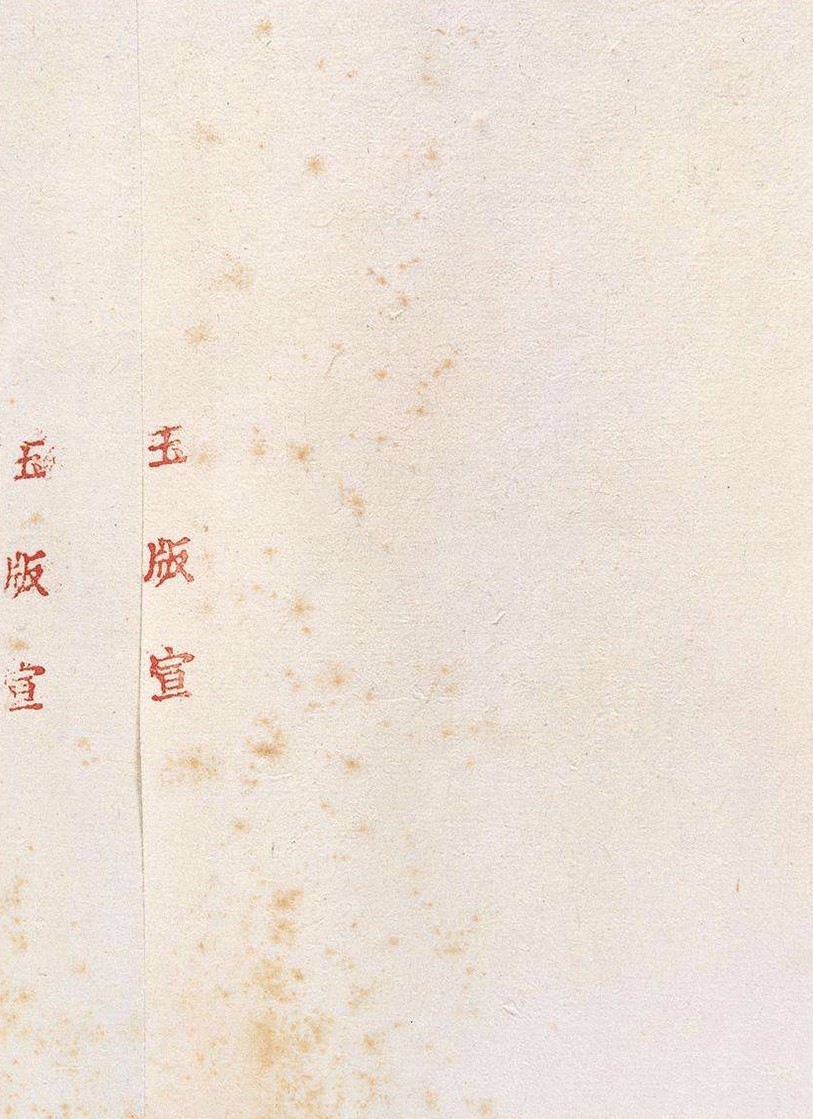 玉版宣
玉版宣